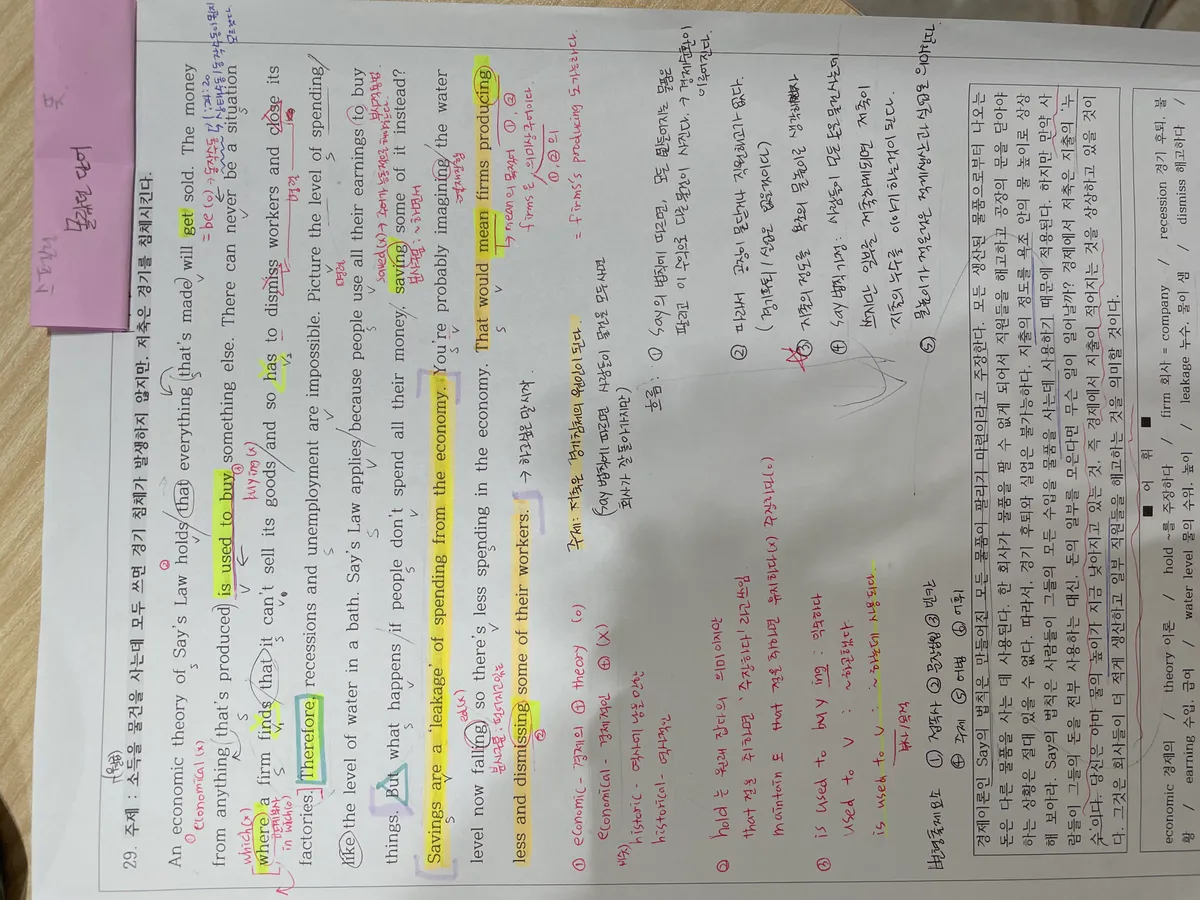 스포일러 뜻
놀라면 단어
29. 주제 : 소득을 물건을 사는데 모두 쓰면 경기 침체가 발생하지 않지만. 저축은 경기를 침체시킨다.
An economic theory of Say's Law holds that everything that's made will get sold. The money
economical(x)
from anything that's produced is used to buy something else. There can never be a situation
which(x) buying(x)
where a firm finds that it can't sell its goods and so has to dismiss workers and close its
in which(o)
병렬
factories. Therefore, recessions and unemployment are impossible. Picture the level of spending
명령
like the level of water in a bath. Say's Law applies because people use all their earnings to buy
things. But what happens if people don't spend all their money, saving some of it instead?
분사구문: ~하면서
Savings are a 'leakage' of spending from the economy. You're probably imagining the water
level now falling, so there's less spending in the economy. That would mean firms producing
less and dismissing some of their workers. → 하고싶은 말 시작.
→ mean의 목적어 ①, ②
firms는 의미상주어이다
= firms's producing도 가능하다.
주제: 저축은 경기침체의 원인이 된다.
(Say 법칙에 따르면 사람들이 물건을 모두 사면
회사가 잘 돌아가지만)
① economic - 경제의 ⊕ theory (o)
economical - 경제적인 ⊕ (X)
historic - 역사에 남을만한
historical - 역사적인
② hold는 원래 잡다의 의미이지만
that절을 취하면 '주장하다'라고 쓰임.
maintain도 that절을 취하면 유지하다(x) 주장하다(o)
③ is used to 명 / ing : 익숙하다
used to V : ~하곤했다
is used to V : ~하는데 사용되다.
부사/목적
흐름: ① Say의 법칙에 따르면, 모든 만들어지는 물품은
팔리고 이 수익으로 다른 물건이 사진다. → 경제순환이
이루어진다.
② 따라서 공장이 문닫거나 직원해고가 없다.
(경기후퇴/실업은 없을것이다)
③ 지출의 정도를 욕조의 물높이로 생각해보자
④ Say법칙가정: 사람들이 다른물건을산다는데
하지만 일부를 저축하게되면 저축이
지출의 누수를 야기하는것이 된다.
⑤ 물높이가 적은것은 적게생산하고 실업을 의미한다.
변형출제요소 ① 정동사 ② 문장삽입 ③ 빈칸
④ 주제 ⑤ 어법 ⑥ 어휘
경제이론인 Say의 법칙은 만들어진 모든 물품이 팔리기 마련이라고 주장한다. 모든 생산된 물품으로부터 나오는
돈은 다른 물품을 사는 데 사용된다. 한 회사가 물품을 팔 수 없게 되어서 직원들을 해고하고 공장의 문을 닫아야
하는 상황은 절대 있을 수 없다. 따라서, 경기 후퇴와 실업은 불가능하다. 지출의 정도를 욕조 안의 물 높이로 상상
해 보아라. Say의 법칙은 사람들이 그들의 모든 수입을 물품을 사는데 사용하기 때문에 적용된다. 하지만 만약 사
람들이 그들의 돈을 전부 사용하는 대신, 돈의 일부를 모은다면 무슨 일이 일어날까? 경제에서 저축은 지출의 '누
수'이다. 당신은 아마 물의 높이가 지금 낮아지고 있는 것, 즉 경제에서 지출이 적어지는 것을 상상하고 있을 것이
다. 그것은 회사들이 더 적게 생산하고 일부 직원들을 해고하는 것을 의미할 것이다.
■ 어 휘 ■
economic 경제의 / theory 이론 / hold ~를 주장하다 / firm 회사 = company / recession 경기 후퇴, 불
황 / earning 수입, 급여 / water level 물의 수위, 높이 / leakage 누수, 물이 샘 / dismiss 해고하다 /